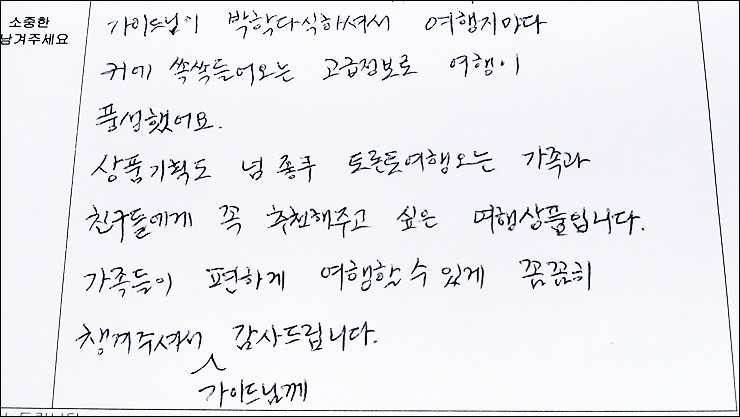 소중한
남겨주세요
가이드님이 박학다식하셔서 여행지마다
귀에 쏙쏙들어오는 고급정보로 여행이
풍성했어요.
상품기획도 넘 좋쿠 토론토여행오는 가족과
친구들에게 꼭 추천해주고 싶은 여행상품입니다.
가족들이 편하게 여행할 수 있게 꼼꼼히
챙겨주셔서 감사드립니다.
가이드님께